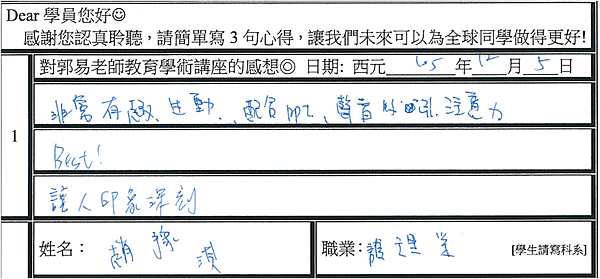 Dear 學員您好☺
感謝您認真聆聽，請簡單寫 3 句心得，讓我們未來可以為全球同學做得更好!
對郭易老師教育學術講座的感想◎ 日期: 西元 05 年 12 月 5 日
1
非常有趣、生動、配合 ppt、聲音 吸引注意力
Best!
讓人印象深刻
姓名： 趙
職業： 護理 [學生請寫科系]